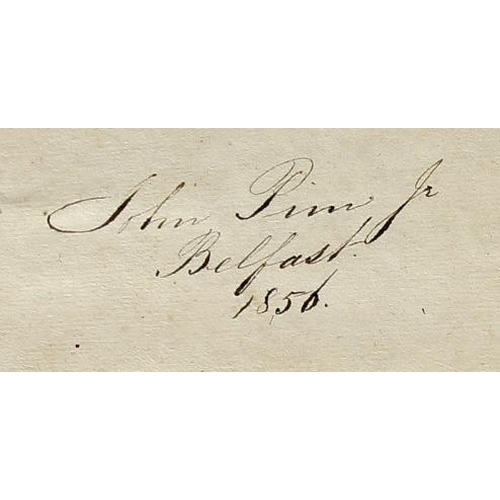 John Pim Jr
Belfast.
1856.